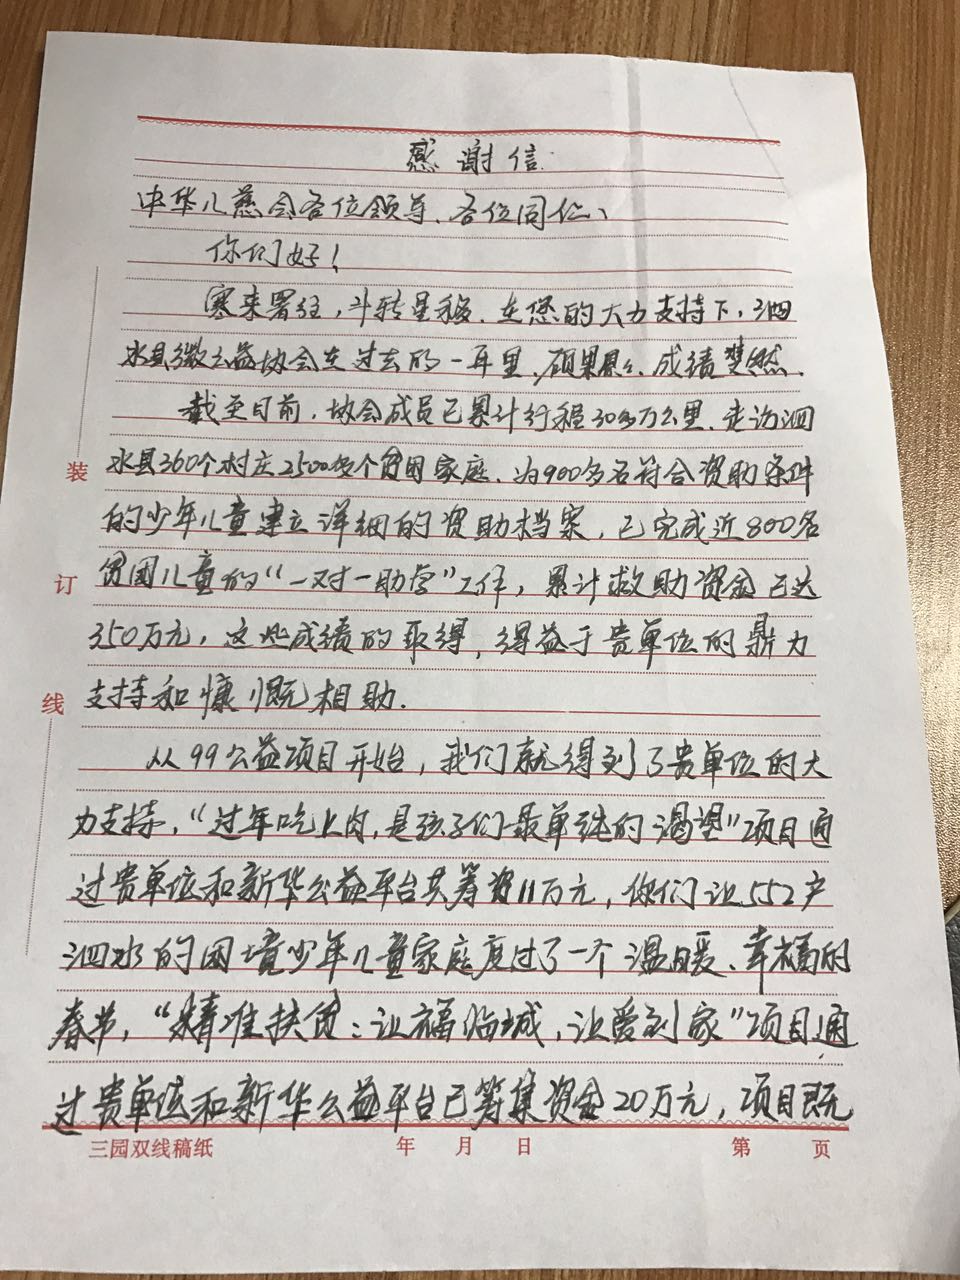 感谢信
中华儿慈会各位领导、各位同仁、
你们好!
寒来署往,斗转星移.在您的大力支持下,泗
水县微公益协会在过去的一年里,硕果累々.成绩斐然.
截至目前,协会成员已累计行程30多万公里.走访泗
水县360个村庄2500多个贫困家庭.为900多名符合资助条件
的少年儿童建立详细的资助档案,已完成近800名
贫困儿童的“一对一助学”工作,累计救助资金已达
350万元,这些成绩的取得,得益于贵单位的鼎力
支持和慷慨相助.
从99公益项目开始,我们就得到了贵单位的大
力支持,“过年吃上肉,是孩子们最单纯的渴望”项目通
过贵单位和新华公益平台共筹资11万元,你们让552户
泗水的困境少年儿童家庭度过了一个温暖、幸福的
春节,“精准扶贫:让福临城,让爱到家”项目通
过贵单位和新华公益平台已筹集资金20万元,项目既
装
订
线
三园双线稿纸 年 月 日 第 页